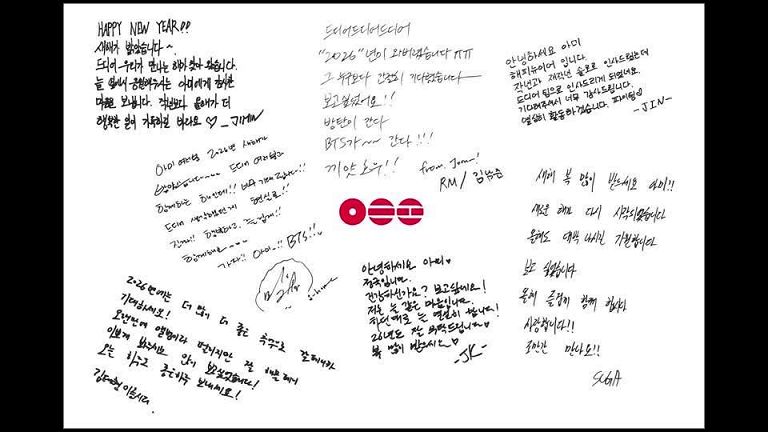 HAPPY NEW YEAR!!
새해가 밝았습니다~
드디어 우리가 만나는 해가 찾아 왔습니다.
늘 옆에서 응원해주는 아미에게 감사한
마음을 보냅니다. 작년보다 올해가 더
행복한 일이 가득하길 바라요 ♡ _JIMIN
드디어드디어드디어
"2026"년이 와버렸습니다 ㅠㅠ
그 누구보다 간절히 기다렸습니다
보고싶었어요!!
방탄이 간다
BTS가~~ 간다!!!
끼얏호우!!
from. Joon-!
RM / 김남준
안녕하세요 아미
해피뉴이어 입니다.
작년과 재작년 솔로로 인사드렸는데
드디어 팀으로 인사드리게 되었네요.
기다려주셔서 너무 감사드립니다.
열심히 활동하겠습니다. 파이팅♡
-JIN-
아미 여러분 2026년 새해가
밝았습니다~~~ 드디어 여러분과
함께하는 해인데!!
드디어
가자!! 아미!! BTS!!
새해 복 많이 받으세요 아미!!
새로운 해가 다시 시작되었습니다
올해도 대박 나시길 기원합니다
보고 싶었습니다
올해 즐겁게 함께 합시다
사랑합니다!!
조만간 만나요!!
SUGA
안녕하세요 아미♡
정국입니다.
건강하신가요? 보고싶네요!
저는 늘 같은 마음입니다.
하던대로 늘 열심히 합니다!
26년도 잘 부탁드립니다♡
복 많이 받으시오♡
-JK-
2026년에는 더 많이 더 좋은 추억으로
기대하세요!
오랜만에 앨범이라 떨리지만 잘 해볼테니
이쁘게 봐주시오 많이 보고싶었습니다!
오늘 하루도 좋은하루 보내세요!
김태형 이쁘시다.